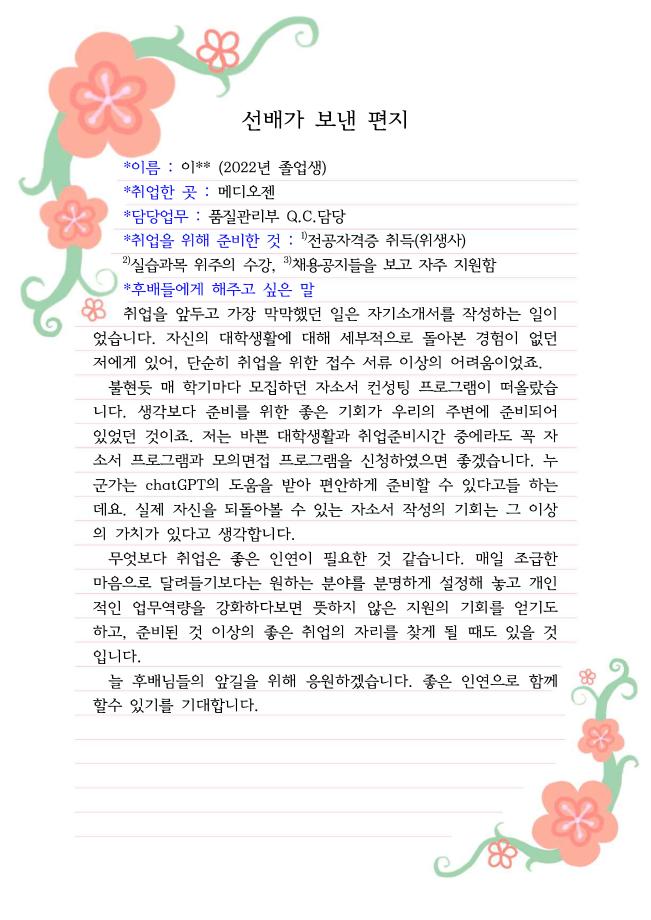 선배가 보낸 편지
*이름 : 이** (2022년 졸업생)
*취업한 곳 : 메디오젠
*담당업무 : 품질관리부 Q.C.담당
*취업을 위해 준비한 것 : 1)전공자격증 취득(위생사)
2)실습과목 위주의 수강, 3)채용공지들을 보고 자주 지원함
*후배들에게 해주고 싶은 말
취업을 앞두고 가장 막막했던 일은 자기소개서를 작성하는 일이
었습니다. 자신의 대학생활에 대해 세부적으로 돌아본 경험이 없던
저에게 있어, 단순히 취업을 위한 접수 서류 이상의 어려움이었죠.
불현듯 매 학기마다 모집하던 자소서 컨성팅 프로그램이 떠올랐습
니다. 생각보다 준비를 위한 좋은 기회가 우리의 주변에 준비되어
있었던 것이죠. 저는 바쁜 대학생활과 취업준비시간 중에라도 꼭 자
소서 프로그램과 모의면접 프로그램을 신청하였으면 좋겠습니다. 누
군가는 chatGPT의 도움을 받아 편안하게 준비할 수 있다고들 하는
데요. 실제 자신을 되돌아볼 수 있는 자소서 작성의 기회는 그 이상
의 가치가 있다고 생각합니다.
무엇보다 취업은 좋은 인연이 필요한 것 같습니다. 매일 조급한
마음으로 달려들기보다는 원하는 분야를 분명하게 설정해 놓고 개인
적인 업무역량을 강화하다보면 뜻하지 않은 지원의 기회를 얻기도
하고, 준비된 것 이상의 좋은 취업의 자리를 찾게 될 때도 있을 것
입니다.
늘 후배님들의 앞길을 위해 응원하겠습니다. 좋은 인연으로 함께
할수 있기를 기대합니다.